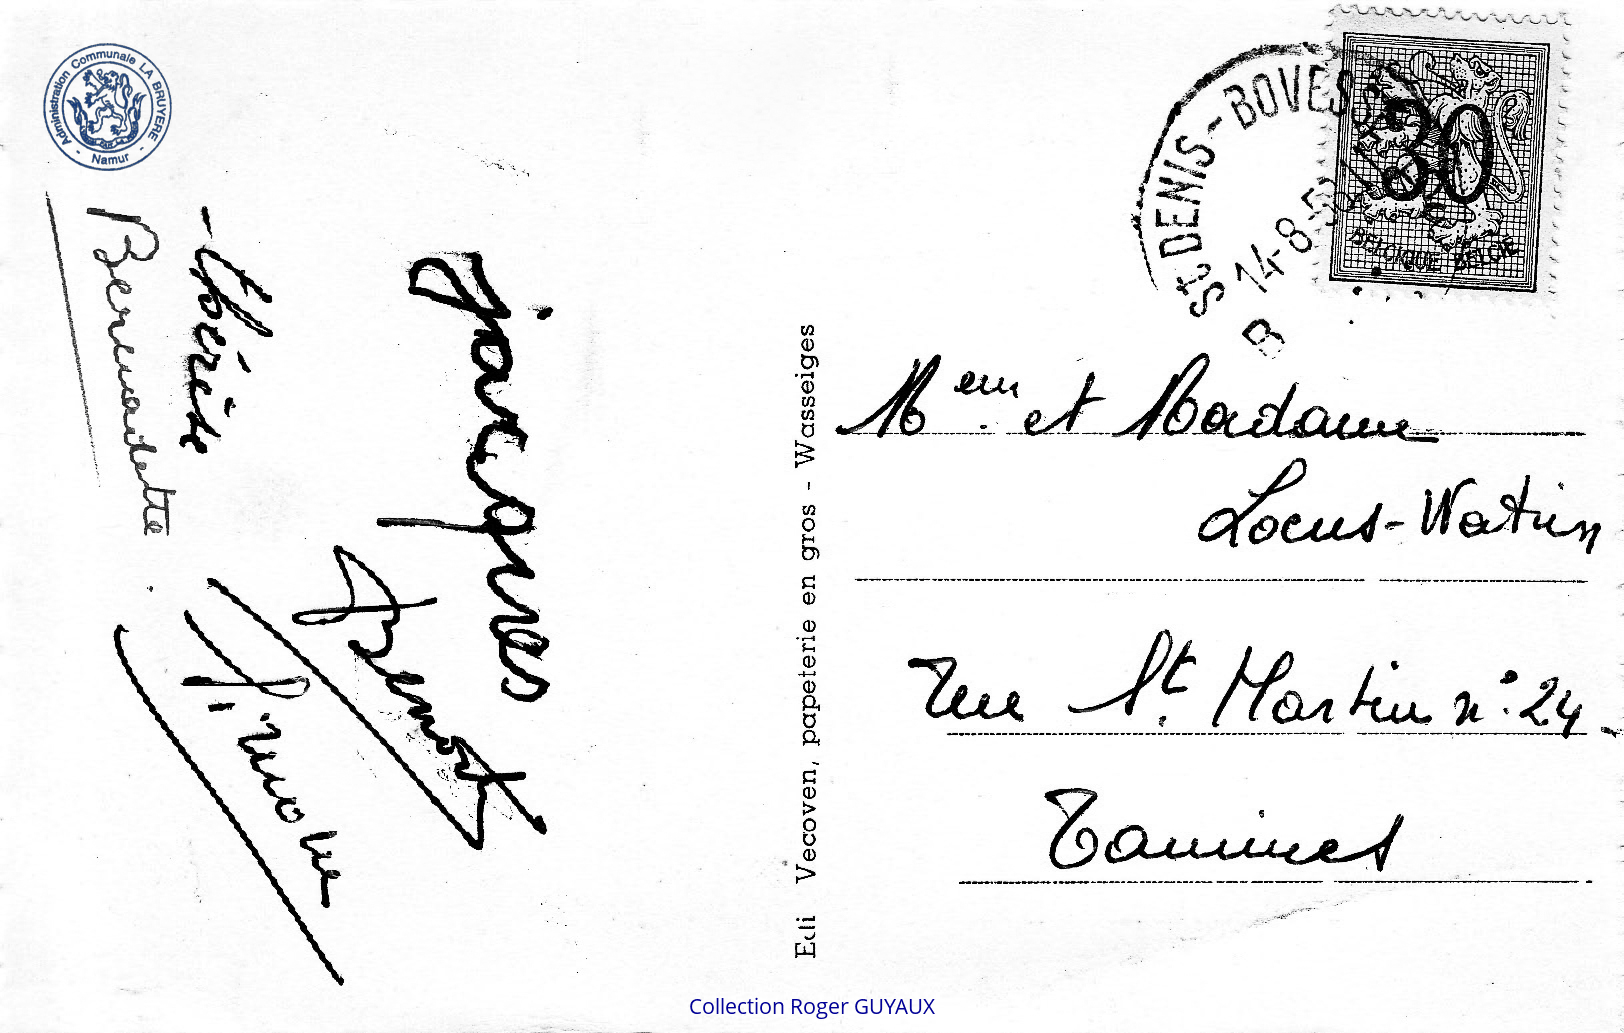 Administration Communale LA BRUYERE
- Namur -
St DENIS-BOVESSE
14-8-5
B
30
BELGIQUE BELGIË
Bernadette
- Thérèse
Jacques
Benoit
Edi Vecoven, papeterie en gros - Wasseiges
Meur et Madame
Locus-Watrin
Rue St. Martin n° 24.
Tamines
Collection Roger GUYAUX